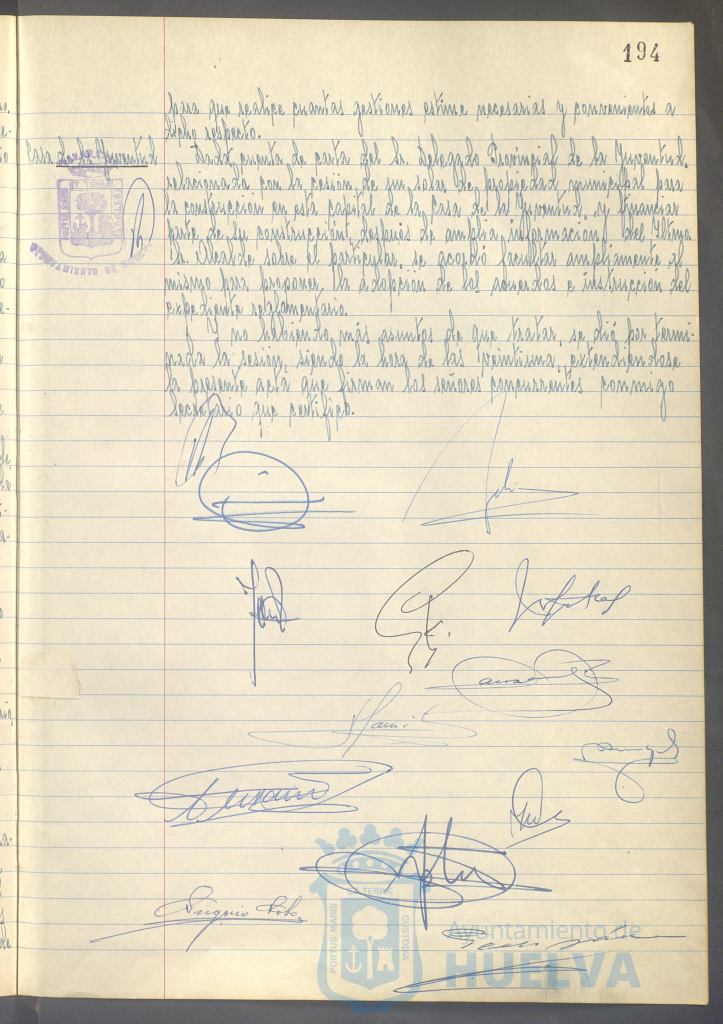 194
para que realice cuantas gestiones estime necesarias y convenientes a
dicho respecto.
Casa de la Juventud
Dada cuenta de carta del Sr. Delegado Provincial de la Juventud,
relacionada con la cesión de un solar de propiedad municipal para
la construcción en esta capital de la Casa de la Juventud, y financiar
parte de su construcción, después de amplia información del Iltmo.
Sr. Alcalde sobre el particular, se acordó facultar ampliamente al
mismo para proponer la adopción de los acuerdos e instrucción del
expediente reglamentario.
Y no habiendo más asuntos de que tratar, se dió por termi-
nada la sesión, siendo la hora de las veintiuna, extendiéndose
la presente acta que firman los señores concurrentes conmigo
Secretario que certifico.
AYUNTAMIENTO DE
PORTUS MARIS
TERRA
CUSTODIA
Ayuntamiento de
HUELVA